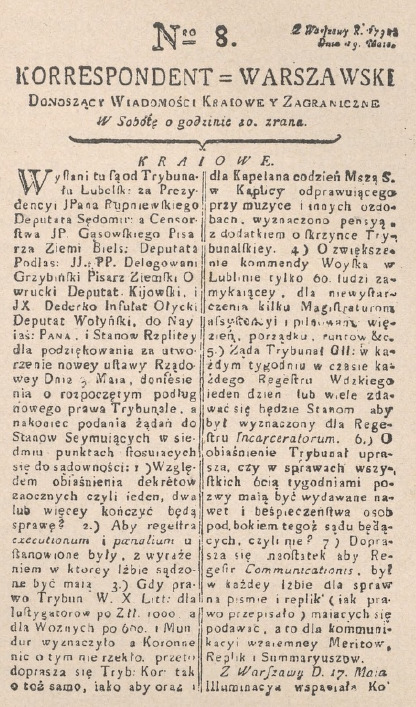 Nro 8.
Z Warszawy R. 1792
Dnia 19. Maia.
KORRESPONDENT = WARSZAWSKI
DONOSZĄCY WIADOMOŚCI KRAIOWE Y ZAGRANICZNE
W Sobótę o godzinie 10. zrana.
KRAIOWE.
Wysłani tu są od Trybuna-
łu Lubelsk: za Prezy-
dencyi JPana Rupniewskiego
Deputata Sędomir: a Censor-
stwa JP. Gąsowskiego Pisa
rza Ziemi Biels: Deputata
Podlas: JJ. PP. Delegowani
Grzybiński Pisarz Ziemski O
wrucki Deputat Kijowski, i
JX Dederko Infułat Ołycki
Deputat Wołyński, do Nay
iaś: PANA, i Stanow Rzplitey
dla podziękowania za utwo
rzenie nowey ustawy Rządo-
wey Dnia 3 Maia, doniesie
nia o rozpoczętym podług
nowego prawa Trybunale, a
nakoniec podania żądań do
Stanów Seymuiących w sie-
dmiu punktach stosuiących
się do sadowności: 1) Wzglę-
dem obiaśnienia dekretów
zaocznych czyli ieden, dwa
lub więcey kończyć będą
sprawę? 2.) Aby regestra
executionum i pænalium u
stanowione były, z wyraże
niem w ktorey Izbie sądzo-
ne być maią 3.) Gdy pra-
wo Trybun W. X Litt: dla
Instygatorow po Ztł. 1000. a
dla Woznych po 600. i Mun
dur wyznaczyło a Koronne
nic o tym nie rzekło. przeto
doprasza się Tryb: Kor: tak
o toż samo, iako aby oraz i
dla Kapelana codzień Mszą S.
w Kaplicy odprawuiącego
przy muzyce i innych ozdo-
bach, wyznaczono pensyą
z dodatkiem o skrzynce Try-
bunalskiey. 4) O zwiększe-
nie kommendy Woyska w
Lublinie tylko 60. ludzi za-
mykaiącey, dla niewystar-
czenia kilku Magistraturom
assystencyi i pilnowania wię-
zień, porządku, runtow &c.
5.) Żąda Trybunał GII: w ka-
żdym tygodniu w czasie ka-
żdego Regestru Wdzkiego
ieden dzień lub wiele zda-
wać się będzie Stanom aby
był wyznaczony dla Rege-
stru Incarceratorum. 6.) O
obiaśnienie Trybunał upra-
sza, czy w sprawach wszy-
stkich 6cią tygodniami po-
zwy maią być wydawane na-
wet i bespieczeństwa osob
pod, bokiem tegoż sądu będą-
cych, czyli nie? 7) Dopra-
sza się naostatek aby Re-
gestr Communicationis, był
w każdey Izbie dla spraw
na pismie i replik (iak pra-
wo przepisało) maiących się
podawać, a to dla kommuni-
kacyi wzaiemney Meritow,
Replik i Summaryuszow.
Z Warszawy D. 17. Maia
Illuminacya wspaniała Ko